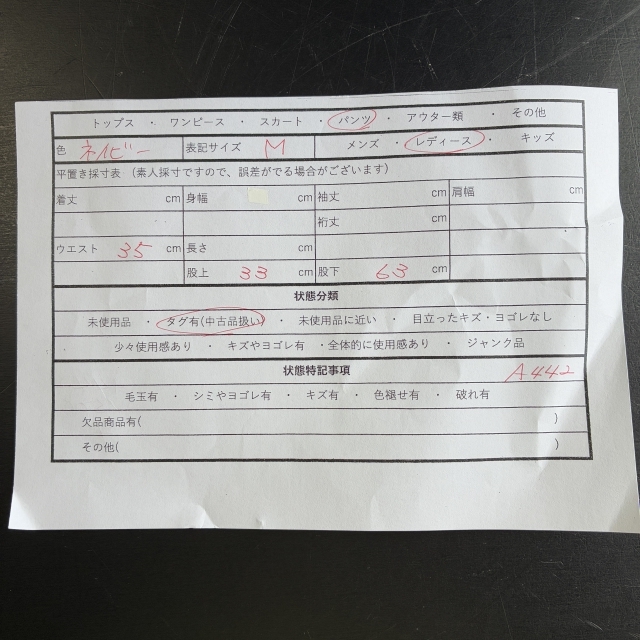 トップス ・ ワンピース ・ スカート ・ パンツ ・ アウター類 ・ その他
色 ネイビー 表記サイズ M メンズ ・ レディース ・ キッズ
平置き採寸表 (素人採寸ですので、誤差がでる場合がございます)
着丈 cm 身幅 cm 袖丈 cm 肩幅 cm
裄丈 cm
ウエスト 35 cm 長さ cm
股上 33 cm 股下 63 cm
状態分類
未使用品 ・ タグ有(中古品扱い) ・ 未使用品に近い ・ 目立ったキズ・ヨゴレなし
少々使用感あり ・ キズやヨゴレ有 ・全体的に使用感あり ・ ジャンク品
状態特記事項 A442
毛玉有 ・ シミやヨゴレ有 ・ キズ有 ・ 色褪せ有 ・ 破れ有
欠品商品有( )
その他( )